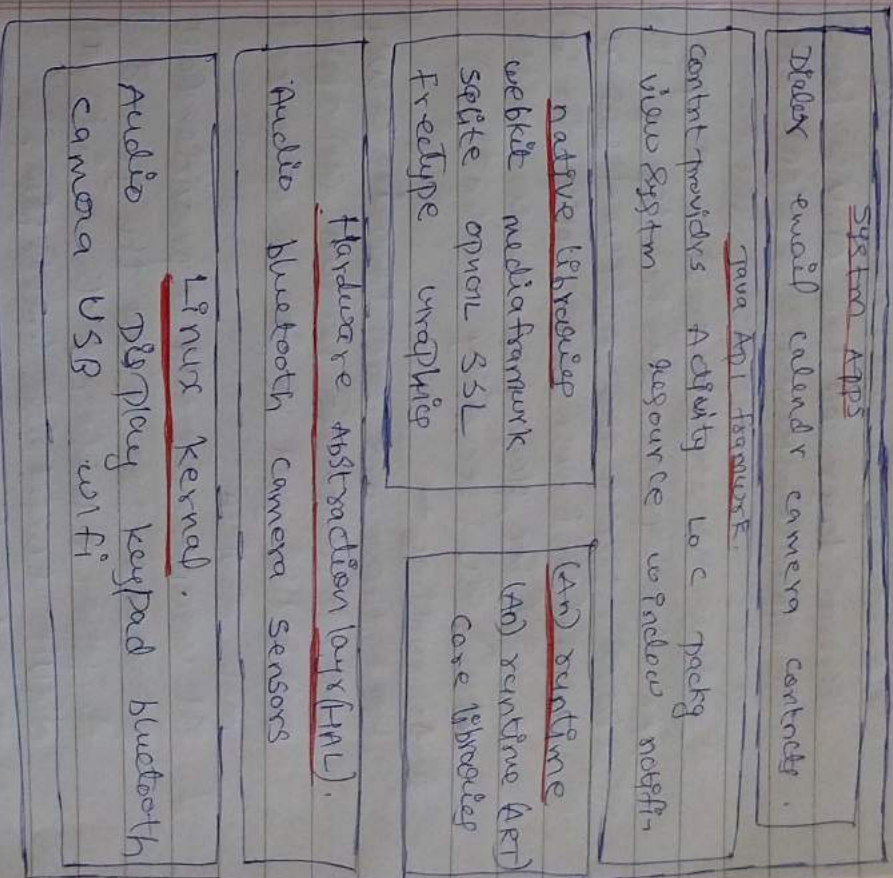 Systm Apps
Dialer email calendr camera contacts.
Java Api framwork.
contnt providrs Activity Loc packg
view Systm resource window notifi-
native libraries
webkit mediaframwork
sqlite opnGL SSL
freetype graphics
(An) runtime
(An) runtime (ART)
core libraries
Hardware Abstraction layr (HAL).
Audio bluetooth camera sensors
Linux kernal.
Audio Display keypad bluetooth
camera USB wifi